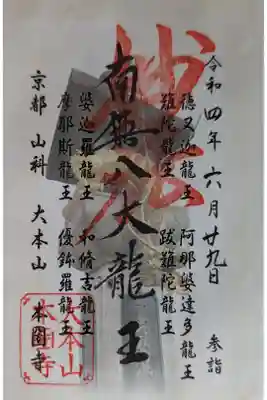 令和四年六月廿九日 参詣
妙法
徳叉迦龍王 阿那婆達多龍王
難陀龍王 跋難陀龍王
南無八大龍王
娑迦羅龍王 和脩吉龍王
摩耶斯龍王 優鉢羅龍王
京都 山科 大本山 本圀寺
大本山
本圀寺